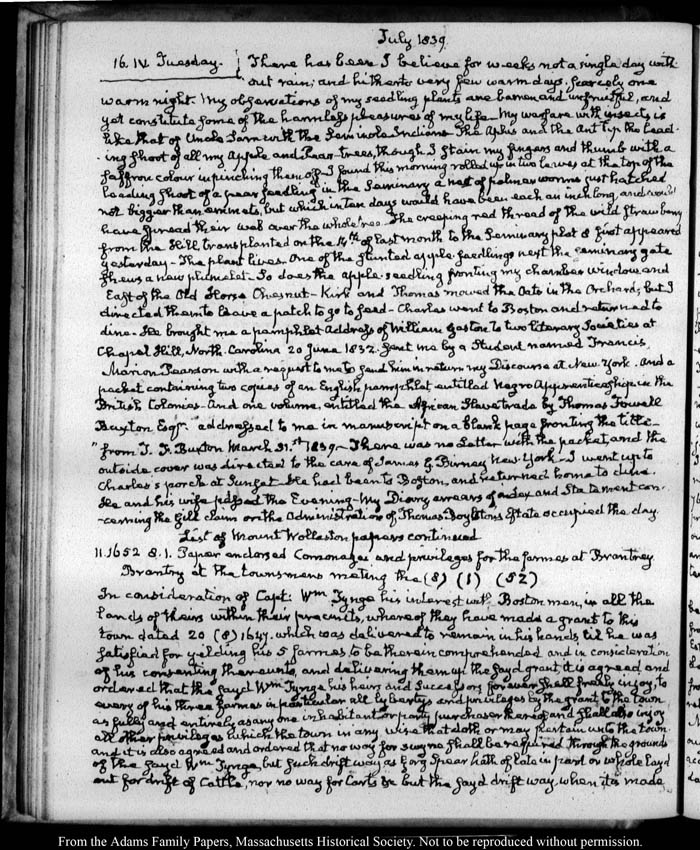 July 1839.
16. IV. Tuesday. There has been I believe for weeks not a single day with-
out rain; and hitherto very few warm days. Scarcely one
warm night. My observations of my seedling plants are barren and unfruitful, and
yet constitute some of the harmless pleasures of my life. My warfare with insects is
like that of Uncle Sam with the Seminole Indians. The Aphis and the Ant tip the lead-
-ing shoot of all my Apple and Pear-trees, though I stain my fingers and thumb with a
saffron colour in pinching them off. I found this morning rolled up in two leaves at the top of the
leading shoot of a pear seedling in the Seminary a nest of palmer worms just hatched
not bigger than emmets, but which in ten days would have been each an inch long, and would
have spread their web over the whole tree. The creeping red thread of the wild strawberry
from the Hill, transplanted on the 14th of last month to the Seminary plot & first appeared
yesterday - The plant lives. One of the stunted apple seedlings next the seminary gate
shews a new plumelet. So does the apple-seedling fronting my chamber window, and
East of the Old Horse Chesnut - Kirk and Thomas mowed the Oats in the Orchard; but I
directed them to leave a patch to go to seed - Charles went to Boston and returned to
dine. He brought me a pamphlet Address of William Gaston to two literary Societies at
Chapel Hill, North-Carolina 20 June 1832. sent me by a Student named Francis
Marion Pearson with a request to me to send him in return my Discourse at New York. And a
packet containing two copies of an English pamphlet entitled Negro Apprenticeship in the
British Colonies - And one volume, entitled the African Slave trade by Thomas Fowell
Buxton Esqr. addressed to me in manuscript on a blank page fronting the title-
"from T. F. Buxton March 31.st 1839 - There was no Letter with the packet, and the
outside cover was directed to the care of James G. Birney New York - I went up to
Charles's porch at Sunset. He had been to Boston, and returned home to dine.
He and his wife passed the Evening - My Diary, arrears of index and Statement con-
-cerning the Gill claim on the Administration of Thomas Boylston's Estate occupied the day.
List of Mount Wollaston papers continued
11. 1652 8. 1. Paper endorsed Comonages and privileges for the farmes at Brantrey
Brantry at the townsmens meting the (8) (1) (52)
In consideration of Capt: Wm Tynge his interest wth Boston men, in all the
lands of theirs within their precincts, whereof they have made a grant to this
town dated 20 (8) 1647. which was delivered to remain in his hands, til he was
satisfied for yelding his 5 farmes to be therein comprehended and in consideration
of his consenting thereunto, and delivering them up the sayd grant it is agreed and
ordered that the sayd Wm Tynge his heirs and Successors for ever shall freely injoy, to
every of his three farmes in particular all lybertys and privileges by the grant to the town
as fully and entirely as any one inhabitant or party purchaser thereof and shall also injoy
all other privileges which the town in any wise that doth or may pertain unto the town
and it is also agreed and ordered that no way for swyne shall be required through the grounds
of the sayd Wm Tynge, but such drift way as Georg Spear hath of late in part or whole layd
out for drift of Cattle, nor no way for Carts &c but the sayd drift way, when it is made
From the Adams Family Papers, Massachusetts Historical Society. Not to be reproduced without permission.